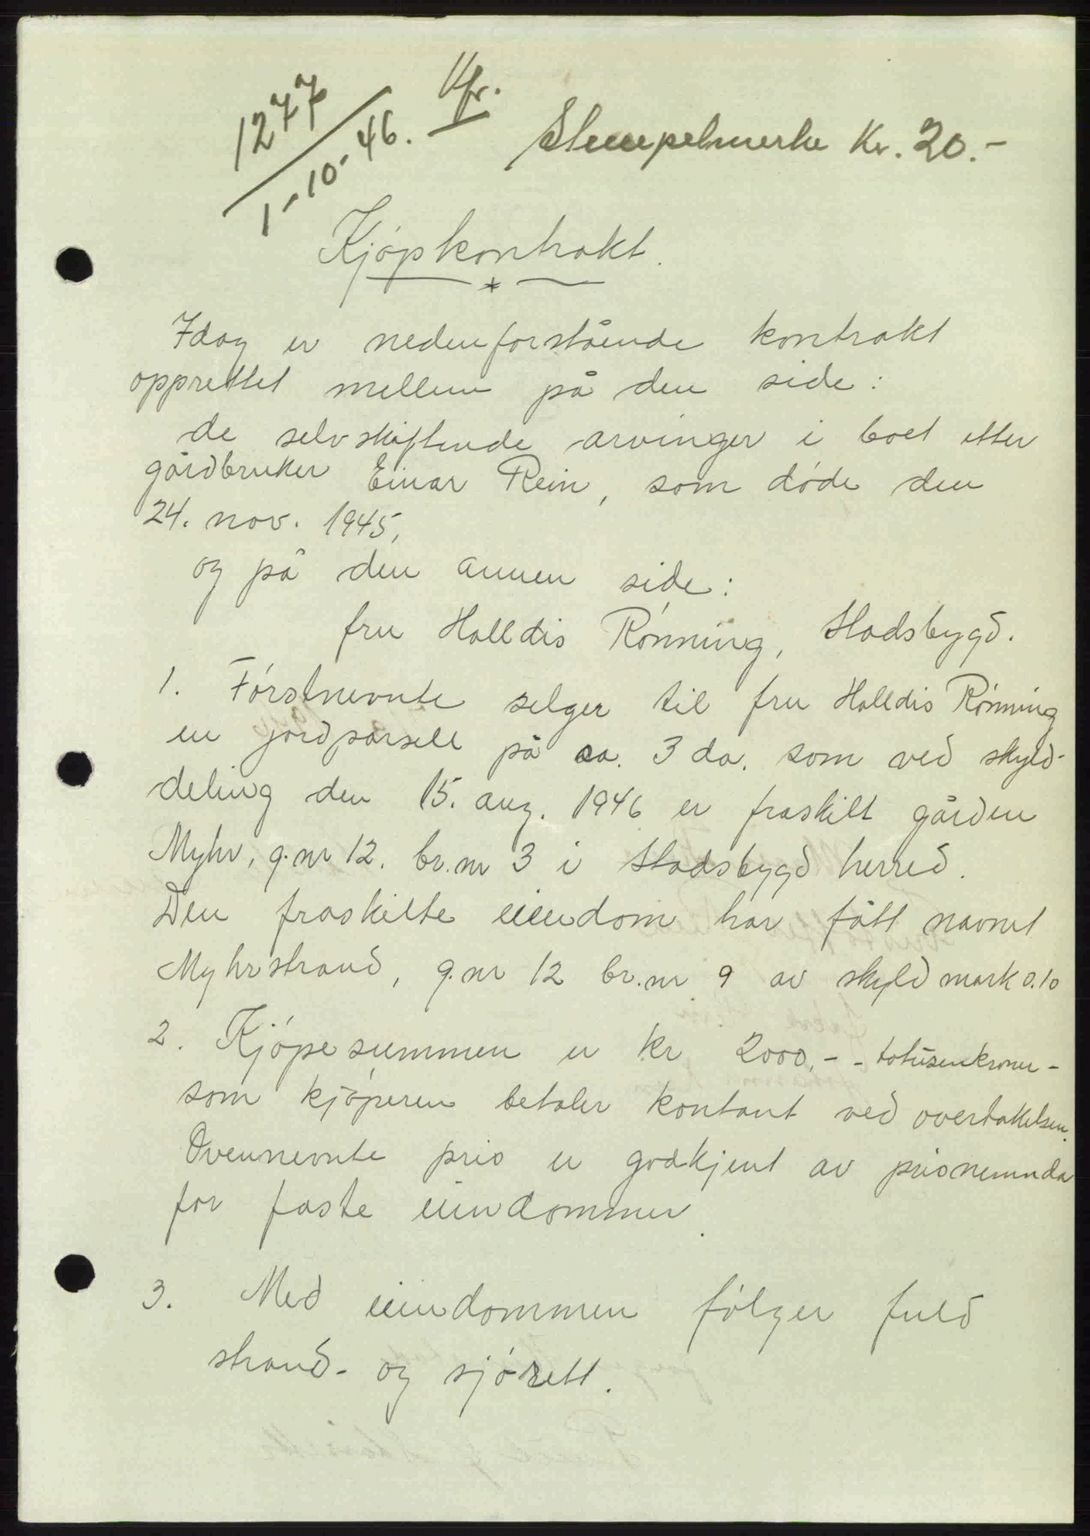 1277
1-10-46. Ufr.
Stempelmerke Kr. 20.-
Kjøpkontrakt.
Idag er nedenforstående kontrakt
opprettet mellem på den side:
de selvskiftende arvinger i boet etter
gårdbruker Einar Rein, som døde den
24. nov. 1945,
og på den annen side:
fru Halldis Rønning, Stadsbygd.
1. Førstnevnte selger til fru Halldis Rønning
en jordparsell på ca. 3 da. som ved skyld-
deling den 15. aug. 1946 er fraskilt gården
Myhr, g.nr 12. br.nr 3 i Stadsbygd herred.
Den fraskilte eiendom har fått navnet
Myhrstrand, g.nr 12 br.nr 9 av skyld mark 0.10
2. Kjøpesummen er kr 2000,- - totusenkroner -
som kjøperen betaler kontant ved overtakelsen.
Ovennevnte pris er godkjent av prisnemnda
for faste eiendommer.
3. Med eiendommen følger full
strand- og sjørett.